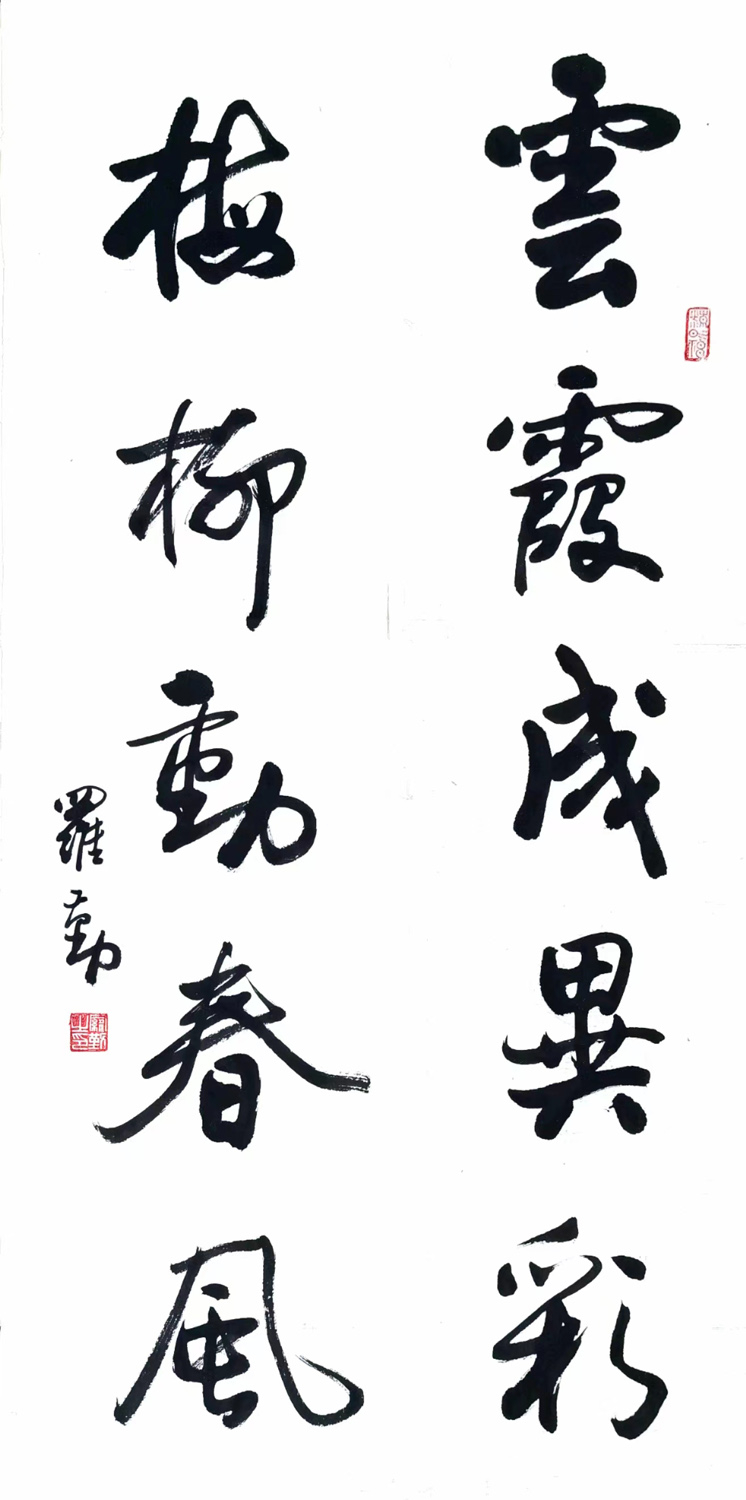 雲霞成異彩
梅柳動春風
羅勤